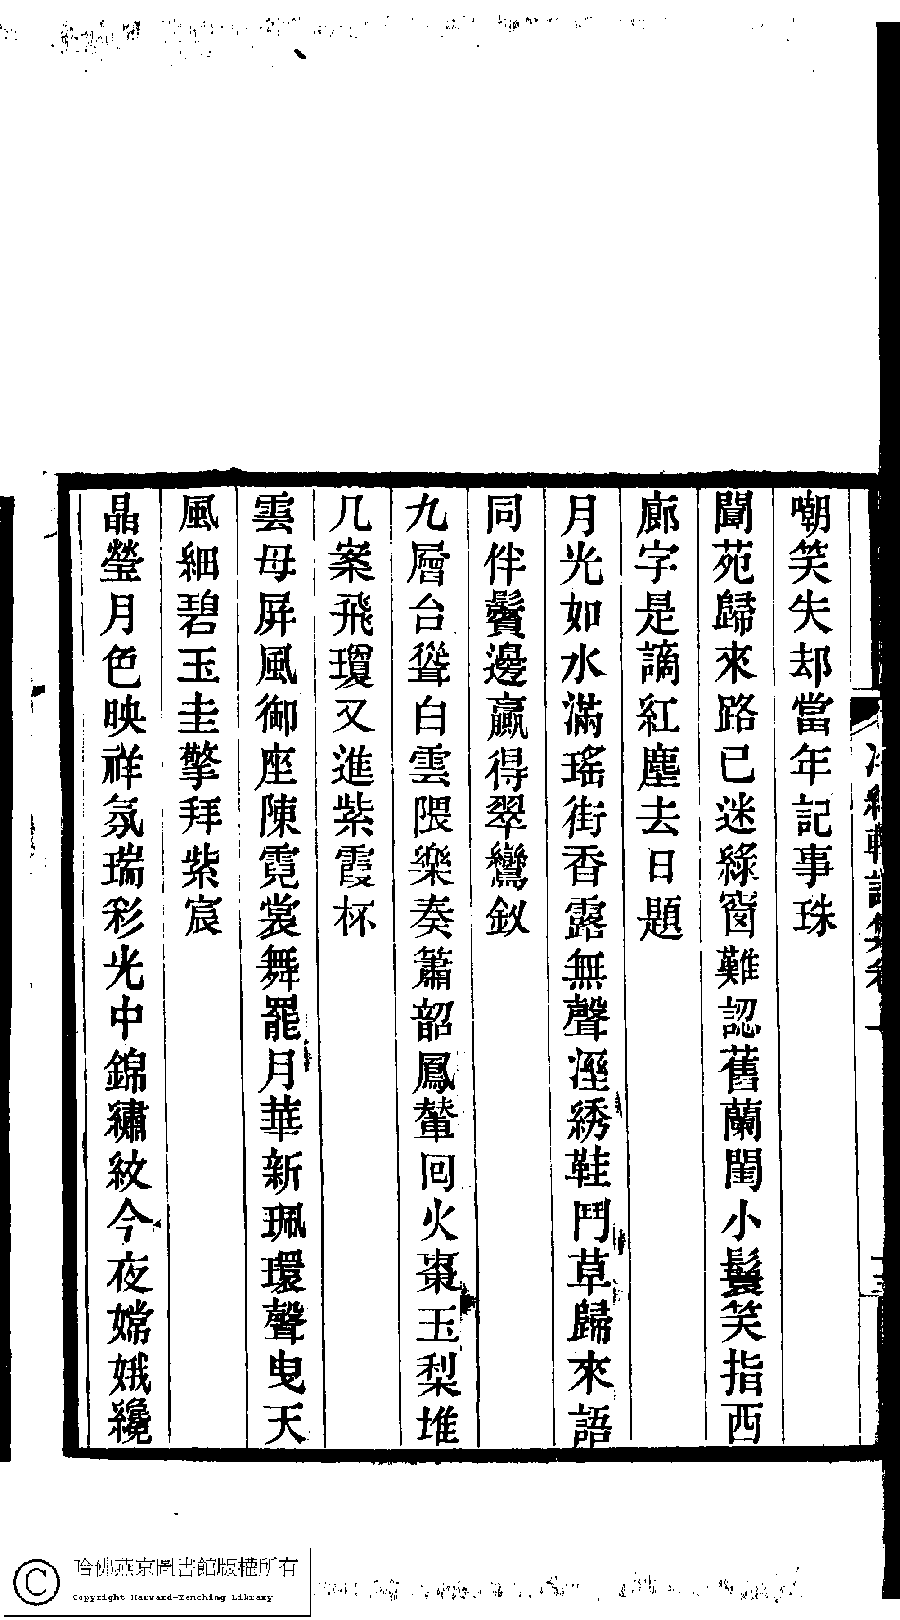 嘲笑失却當年記事珠
閬苑歸來路已迷綠窗難認舊蘭閨小鬟笑指西
廊字是謫紅塵去日題
月光如水滿瑤街香露無聲溼綉鞋鬥草歸來語
同伴鬢邊贏得翠鸞釵
九層台聳白雲隈樂奏簫韶鳳輦回火棗玉梨堆
几案飛瓊又進紫霞杯
雲母屏風御座陳霓裳舞罷月華新珮環聲曳天
風細碧玉圭擎拜紫宸
晶瑩月色映祥氛瑞彩光中錦繡紋今夜嫦娥纔
哈佛燕京圖書館版權所有
Copyright Harvard-Yenching Library